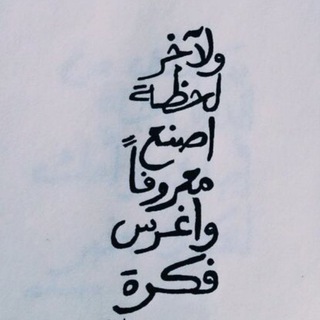 ولآخر
لحظة
اصنع
معروفاً
واغرس
فكرة